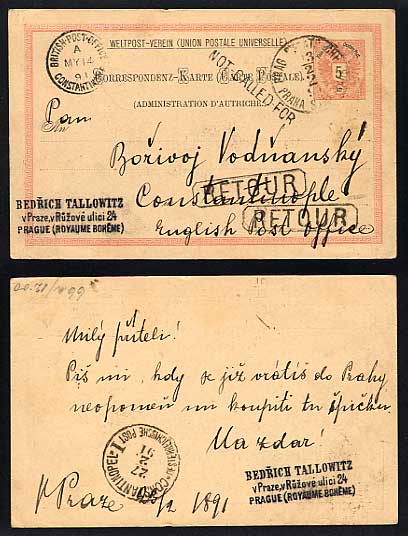 BRITISH-POST-OFFICE
A
MY 14
91
CONSTANTINOPLE
WELTPOST-VEREIN (UNION POSTALE UNIVERSELLE)
CORRESPONDENZ-KARTE (CARTE POSTALE).
(ADMINISTRATION D'AUTRICHE)
5
NOT CALLED FOR
PRAHA
Pan
An
Bořivoj Vodňanský
RETOUR
Constantinople
RETOUR
English Post office
BEDŘICH TALLOWITZ
v Praze, v Růžové ulici 24
PRAGUE (ROYAUME BOHÊME)
Milý příteli!
Piš mi, kdy se již vrátíš do Prahy
neopomeň mi koupiti tu špičku.
Nazdar.
CONSTANTINOPEL I
27
2
91
V Praze /2 1891
BEDŘICH TALLOWITZ
v Praze, v Růžové ulici 24
PRAGUE (ROYAUME BOHÊME)